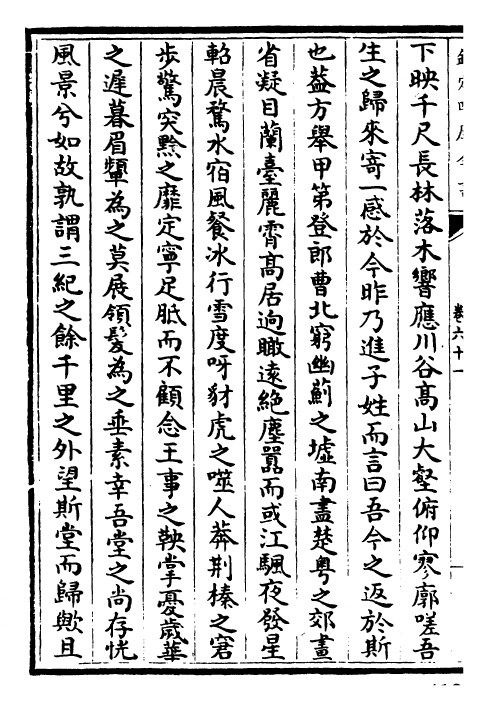 欽定四庫全書
卷六十一
下映千尺長林落木響應川谷髙山大壑俯仰寥廓嗟吾
生之歸來寄一感於今昨乃進子姓而言曰吾今之返於斯
也葢方舉甲第登郎曹北窮幽薊之墟南盡楚粤之郊畫
省凝目蘭臺麗霄髙居逈瞰逺絶塵嚣而或江颿夜發星
軺晨騖水宿風餐冰行雪度呀豺虎之噬人莽荆榛之窘
歩驚突黔之靡定寧足胝而不顧念王事之鞅掌憂歲華
之遲暮眉顰為之莫展領髪為之垂素幸吾堂之尚存恍
風景兮如故孰謂三紀之餘千里之外望斯堂而歸歟且